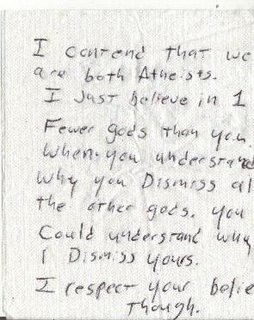 I contend that we
are both Atheists.
I Just believe in 1
Fewer gods than you.
when you understand
why you Dismiss al
the other gods. you
Could understand why
I Dismiss yours.
I respect your belie
Though.